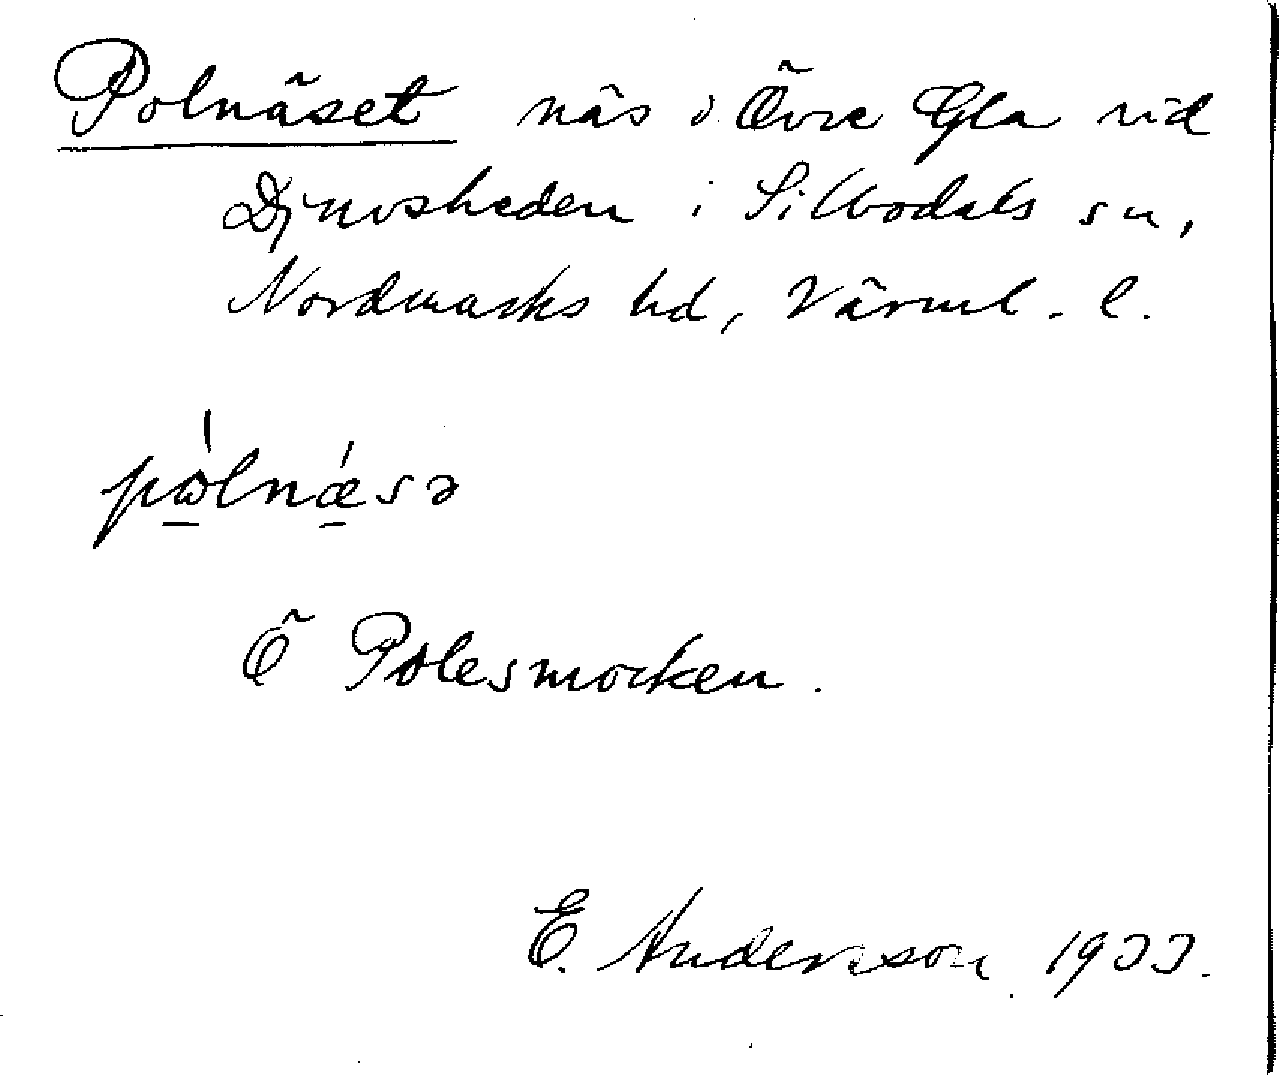 Polnäset näs i Övre Gla vid
Djuvsheden i Silbodals sn,
Nordmarks hd, Värml. l.
pὼlnǽsə
Ö Polesmocken.
E. Andersson. 1933.